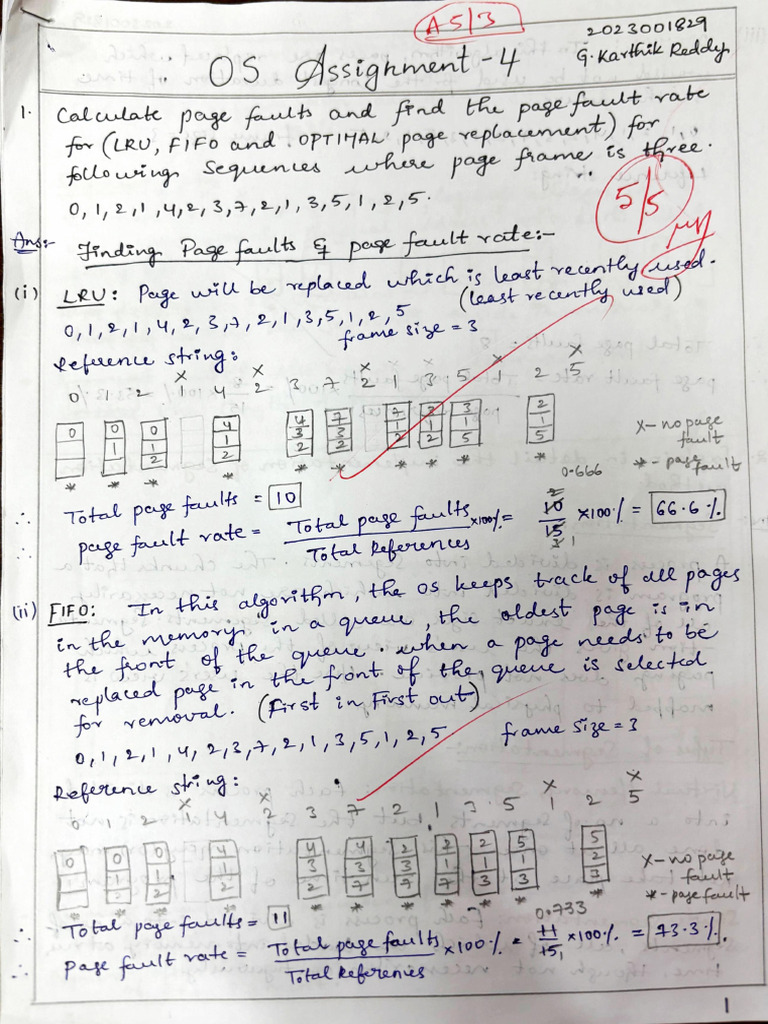 A5/3
2023001829
G. Karthik Reddy
OS Assignment - 4
1. Calculate page faults and find the page fault rate
for (LRU, FIFO and OPTIMAL page replacement) for
following sequences where page frame is three.
0, 1, 2, 1, 4, 2, 3, 7, 2, 1, 3, 5, 1, 2, 5.
5/5
Ans:- Finding Page faults & page fault rate:-
(i) LRU: Page will be replaced which is least recently used.
(least recently used)
0, 1, 2, 1, 4, 2, 3, 7, 2, 1, 3, 5, 1, 2, 5
frame size = 3
Reference string:
x x x x x x
0 1 2 1 4 2 3 7 2 1 3 5 1 2 5
0 0 0 4 4 7 7 3 3 2
1 1 1 3 3 1 1 1 1
2 2 2 2 2 2 5 5
* * * * * * * * * * *
x - no page
fault
* - page fault
∴ Total page faults = 10
0.666
∴ page fault rate = Total page faults / Total References ×100% = 10/15 ×100% = 66.6%
2
3 1
(ii) FIFO: In this algorithm, the OS keeps track of all pages
in the memory in a queue, the oldest page is in
the front of the queue. when a page needs to be
replaced page in the front of the queue is selected
for removal. (First in First out)
0, 1, 2, 1, 4, 2, 3, 7, 2, 1, 3, 5, 1, 2, 5
frame size = 3
Reference string:
x x x x
0 1 2 1 4 2 3 7 2 1 3 5 1 2 5
0 0 0 4 4 4 2 2 2 5 5
1 1 1 3 3 3 1 1 1 2
2 2 2 7 7 7 3 3 3
* * * * * * * * * * *
x - no page
fault
* - page fault
∴ Total page faults = 11
0.733
∴ Page fault rate = Total page faults / Total References ×100% = 11/15 ×100% = 73.3%.
1